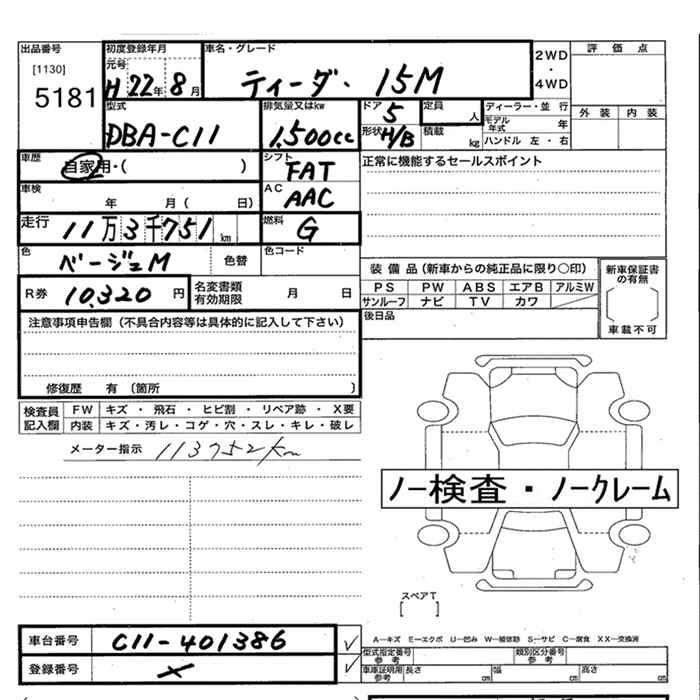 出品番号 初度登録年月 車名・グレード 評価点
[1130] 元号 2WD
5181 H22年8月 ティーダ・15M ・
4WD
型式 排気量又はkw ドア 定員 ディーラー・並行 外装 内装
DBA-C11 1,500cc 5 人 モデル年式 年
形状 H/B 積載 kg ハンドル 左・右
車歴 自家用・( ) シフト FAT 正常に機能するセールスポイント
車検 年 月( 日) AC AAC
走行 11万3千751km 燃料 G
色 ベージュM 色替 色コード
装備品(新車からの純正品に限り○印) 新車保証書の有無
R券 10,320円 名変書類有効期限 月 日 PS PW ABS エアB アルミW
サンルーフ ナビ TV カワ
車載不可
注意事項申告欄(不具合内容等は具体的に記入して下さい) 後日品
修復歴 有 (箇所 )
検査員 FW キズ ・ 飛石 ・ ヒビ割 ・ リペア跡 ・ X要
記入欄 内装 キズ・汚レ・コゲ・穴・スレ・キレ・破レ
メーター指示 113752km
ノー検査・ノークレーム
スペアT
[ ]
車台番号 C11-401386 ✓
A―キズ E―エクボ U―凹み W―補修跡 S―サビ C―腐食 XX―交換済
型式指定番号 参考 類別区分番号 参考
登録番号 × ✓ 車庫証明用 参考 長さ cm 幅 cm 高さ cm